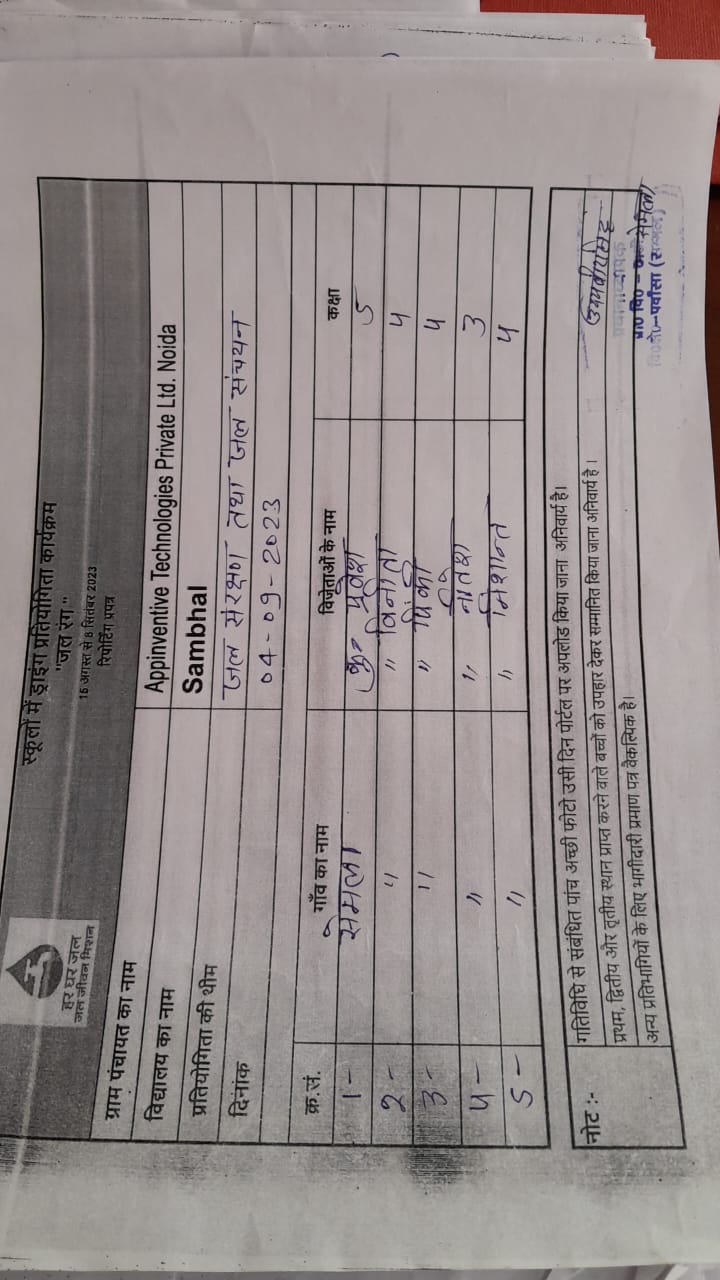 हर घर जल
जल जीवन मिशन
स्कूलों में ड्राइंग प्रतियोगिता कार्यक्रम
"जल रंग"
16 अगस्त से 8 सितंबर 2023
रिपोर्टिंग प्रपत्र
ग्राम पंचायत का नाम Appinventive Technologies Private Ltd. Noida
विद्यालय का नाम Sambhal
प्रतियोगिता की थीम जल संरक्षण तथा जल संचयन
दिनांक 04-09-2023
क्र.सं. गाँव का नाम विजेताओं के नाम कक्षा
1- सेमला कु० प्रवेश 5
2- " " विनीता 4
3- " " पिंकी 4
4- " " नितेश 3
5- " " निशान्त 4
नोट :- गतिविधि से संबंधित पांच अच्छी फोटो उसी दिन पोर्टल पर अपलोड किया जाना अनिवार्य है।
प्रथम, द्वितीय और तृतीय स्थान प्राप्त करने वाले बच्चों को उपहार देकर सम्मानित किया जाना अनिवार्य है।
अन्य प्रतिभागियों के लिए भागीदारी प्रमाण पत्र वैकल्पिक है।
प्रा० वि० - सेमला
वि०क्षे०-पवांसा (सम्भल)